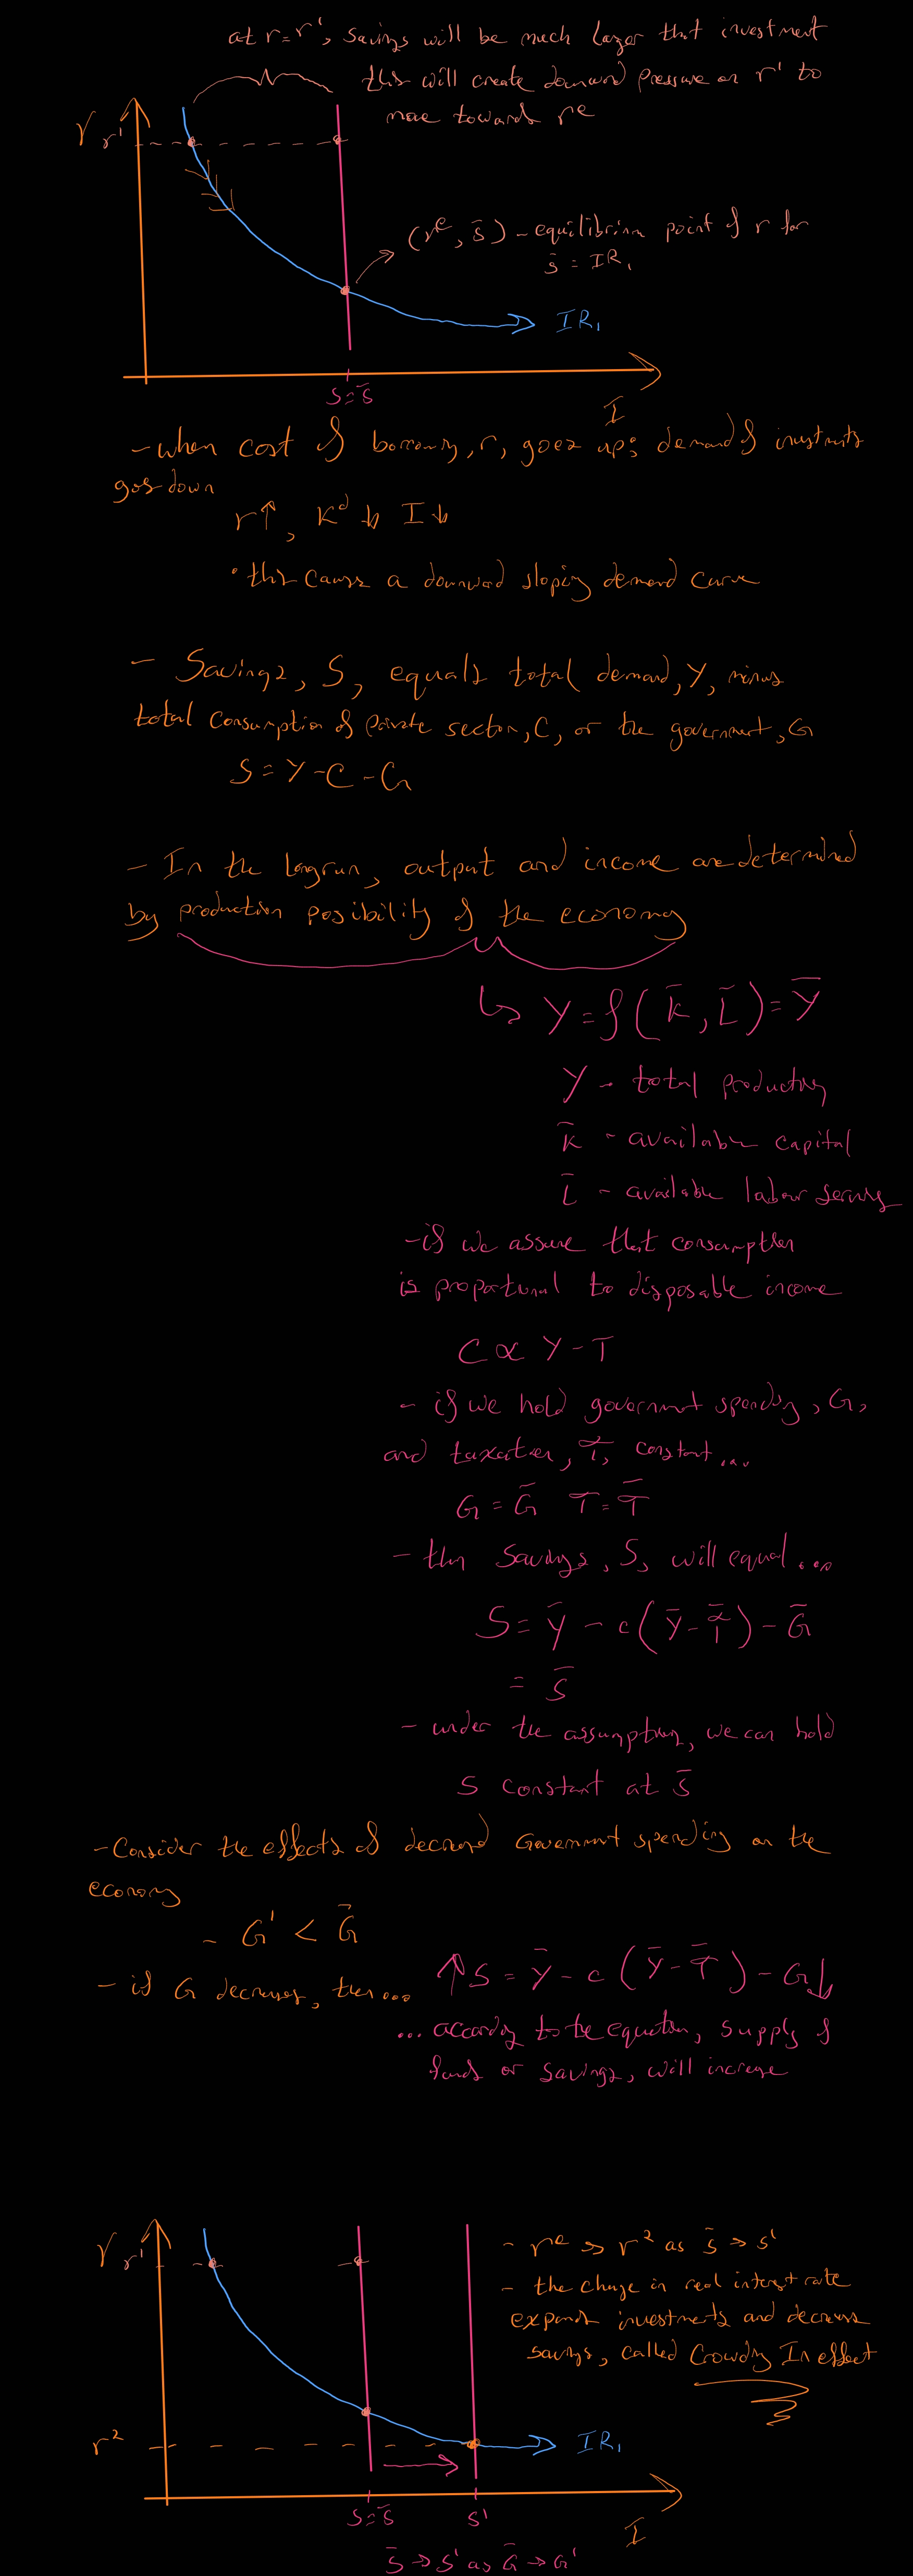 at r=r', savings will be much larger that investment
this will create downward pressure on r' to
move towards rᵉ
r
r'
(rᵉ, s̄) - equilibrium point of r for
s̄ = IR₁
IR₁
S=s̄
I
- when cost of borrowing, r, goes up; demand of investments
goes down
r↑, Kᵈ↓ I↓
• this cause a downward sloping demand curve
- Savings, S, equals total demand, Y, minus
total consumption of private sector, C, or the government, G
S = Y - C - G
- In the longrun, output and income are determined
by production posibility of the economy
↳ Y = f(K̄, L̄) = Ȳ
Y - total production
K̄ - available capital
L̄ - available labour services
- if we assume that consumption
is proportional to disposable income
C ∝ Y - T
- if we hold government spending, G,
and taxation, T, constant...
G = Ḡ T = T̄
- then savings, S, will equal...
S = Ȳ - c(Ȳ - T̄) - Ḡ
= S̄
- under the assumption, we can hold
S constant at S̄
- Consider the effects of decreased Government spending on the
economy
- G' < Ḡ
- if G decreases, then...
↑S = Ȳ - c(Ȳ - T̄) - G↓
... according to the equation, supply of
funds or savings, will increase
r
r'
- rᵉ → r² as s̄ → s'
- the change in real interest rate
expands investments and decreases
savings, called Crowding In effect
r²
IR₁
S=s̄
s'
I
s̄ → s' as Ḡ → G'